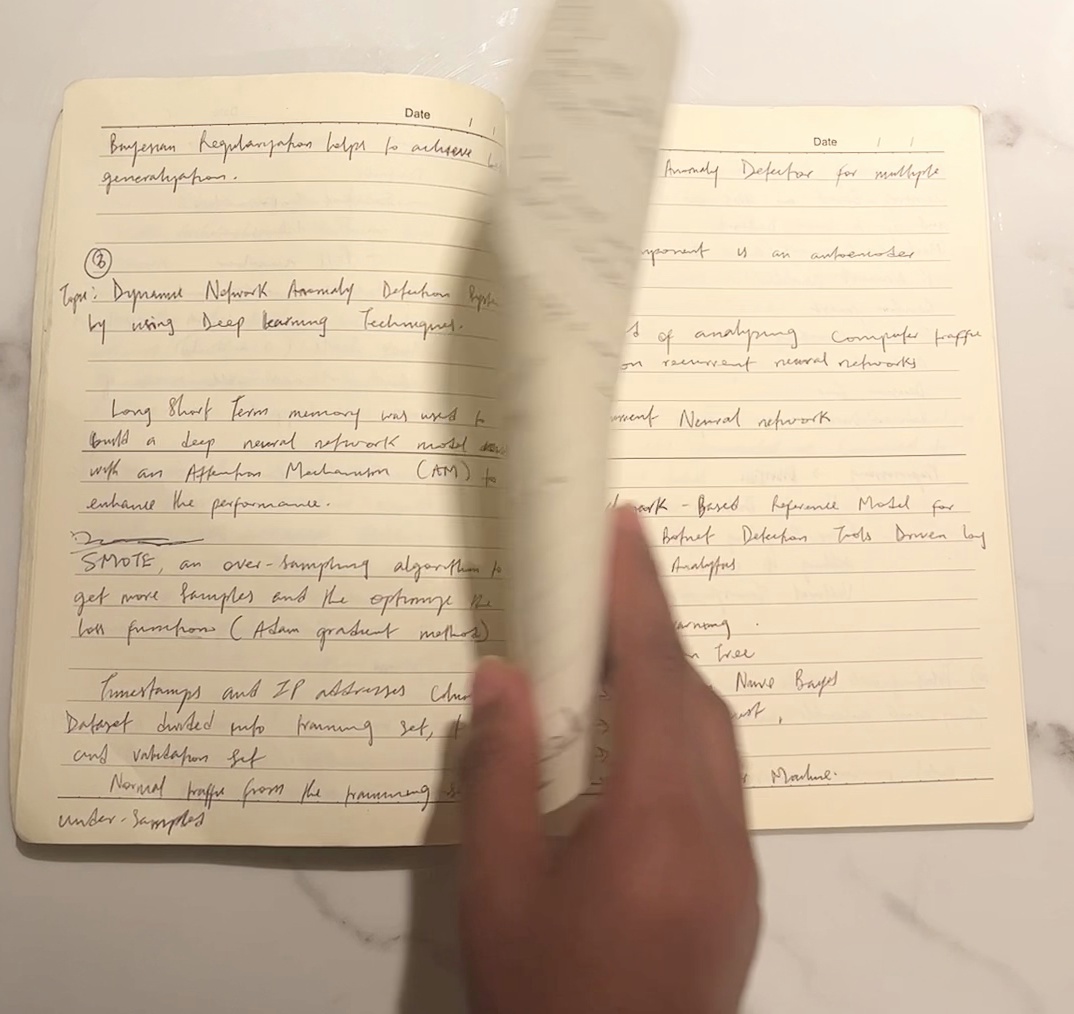 Date / /
Bayesian Regularization helps to achieve
generalization.
3
Topic: Dynamic Network Anomaly Detection System
by using Deep learning Techniques.
Long Short Term memory was used to
build a deep neural network model
with an Attention Mechanism (AM) to
enhance the performance.
SMOTE, an over-sampling algorithm to
get more samples and the optimize the
loss function (Adam gradient method)
Timestamps and IP addresses
Dataset divided into training set,
and validation set
Normal traffic from the training
under-sampled
Date / /
Anomaly Detector for multiple
is an autoencoder
of analyzing Computer traffic
on recurrent neural networks
Neural network
-Based Reference Model for
Botnet Detection Tools Driven by
Analytics
Tree
Naive Bayes
Machine.